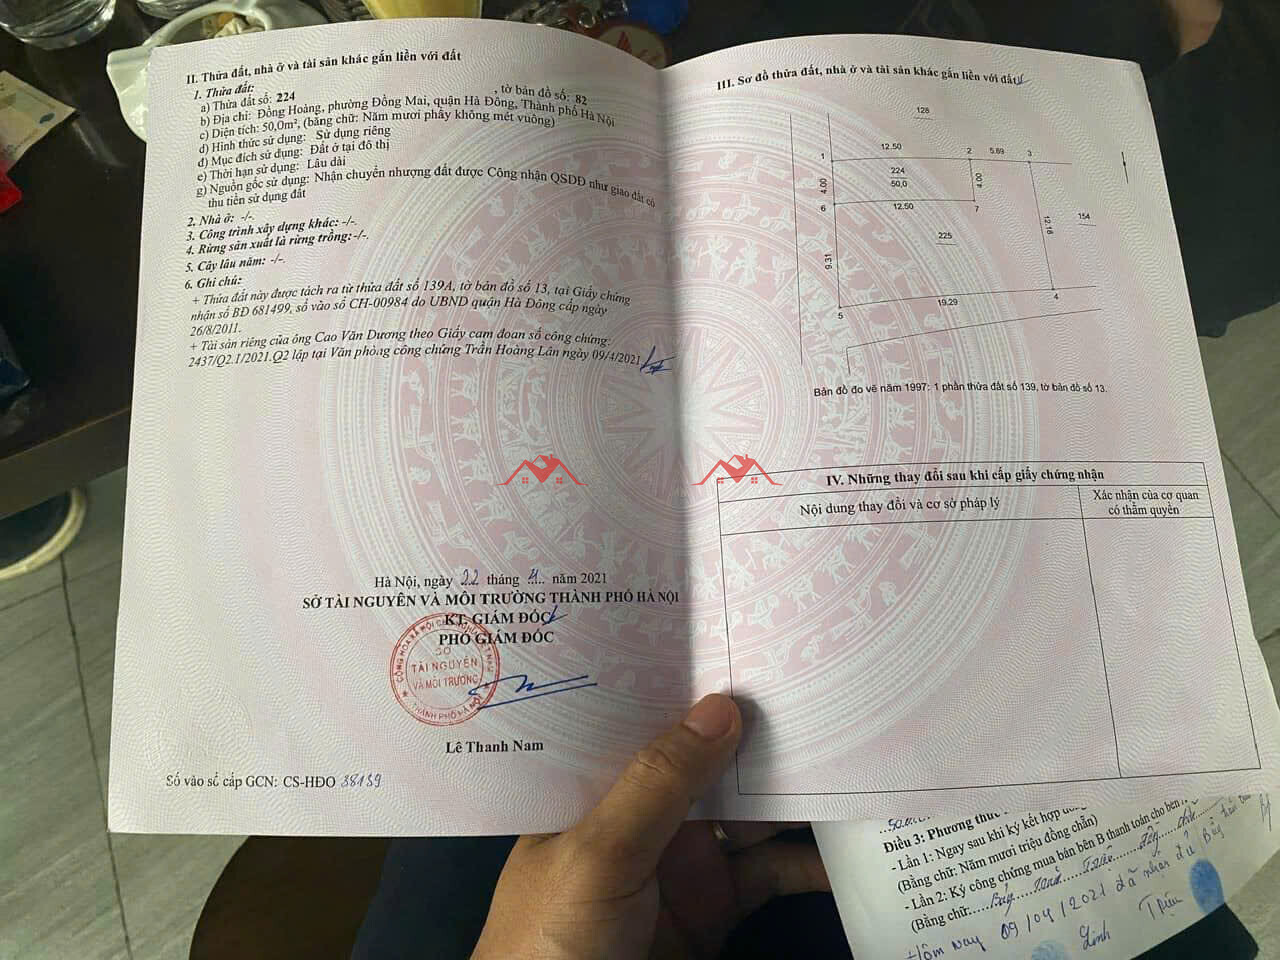 II. Thửa đất, nhà ở và tài sản khác gắn liền với đất
1. Thửa đất:
a) Thửa đất số: 224 , tờ bản đồ số: 82
b) Địa chỉ: Đồng Hoàng, phường Đồng Mai, quận Hà Đông, Thành phố Hà Nội
c) Diện tích: 50,0m², (bằng chữ: Năm mươi phẩy không mét vuông)
d) Hình thức sử dụng: Sử dụng riêng
đ) Mục đích sử dụng: Đất ở tại đô thị
e) Thời hạn sử dụng: Lâu dài
g) Nguồn gốc sử dụng: Nhận chuyển nhượng đất được Công nhận QSDĐ như giao đất có
thu tiền sử dụng đất
2. Nhà ở: -/-.
3. Công trình xây dựng khác: -/-.
4. Rừng sản xuất là rừng trồng: -/-.
5. Cây lâu năm: -/-.
6. Ghi chú:
+ Thửa đất này được tách ra từ thửa đất số 139A, tờ bản đồ số 13, tại Giấy chứng
nhận số BĐ 681499, số vào sổ CH-00984 do UBND quận Hà Đông cấp ngày
26/8/2011.
+ Tài sản riêng của ông Cao Văn Dương theo Giấy cam đoan số công chứng:
2437/Q2.1/2021.Q2 lập tại Văn phòng công chứng Trần Hoàng Lân ngày 09/4/2021
Hà Nội, ngày 22 tháng 4 năm 2021
SỞ TÀI NGUYÊN VÀ MÔI TRƯỜNG THÀNH PHỐ HÀ NỘI
KT. GIÁM ĐỐC
PHÓ GIÁM ĐỐC
SỞ
TÀI NGUYÊN
VÀ MÔI TRƯỜNG
THÀNH PHỐ HÀ NỘI
Lê Thanh Nam
Số vào sổ cấp GCN: CS-HĐO 38139
III. Sơ đồ thửa đất, nhà ở và tài sản khác gắn liền với đất
128
1 12.50 2 5.89 3
4.00 224 4.00
50,0
6 12.50 7
154
225
12.16
9.31
19.29 4
5
Bản đồ đo vẽ năm 1997: 1 phần thửa đất số 139, tờ bản đồ số 13.
IV. Những thay đổi sau khi cấp giấy chứng nhận
Nội dung thay đổi và cơ sở pháp lý
Xác nhận của cơ quan
có thẩm quyền
Điều 3: Phương thức
- Lần 1: Ngay sau khi ký kết hợp đồng
(Bằng chữ: Năm mươi triệu đồng chẵn)
- Lần 2: Ký công chứng mua bán bên B thanh toán cho bên
(Bằng chữ: Bảy
Hôm nay 09/04/2021 đã nhận đủ Bảy
Linh